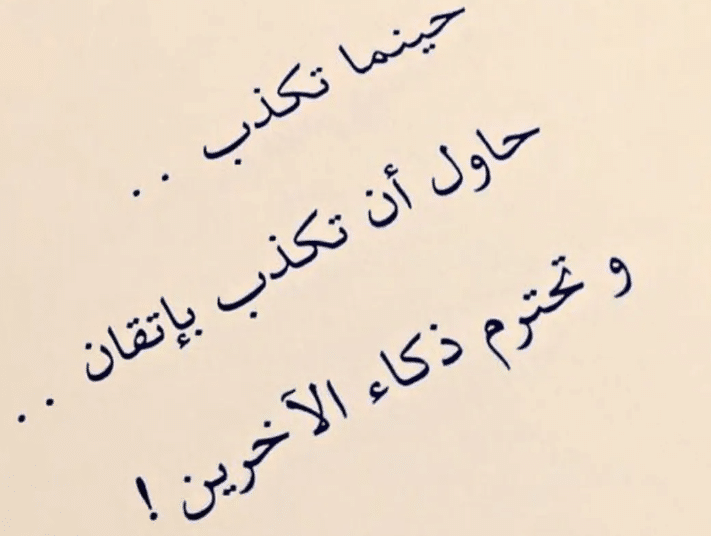 حينما تكذب ..
حاول أن تكذب بإتقان ..
و تحترم ذكاء الآخرين !